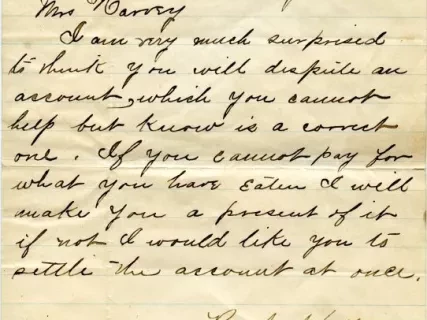 Mrs Harvey
I am very much surprised
to think you will dispute an
account, which you cannot
help but know is a correct
one. If you cannot pay for
what you have eaten I will
make you a present of it
if not I would like you to
settle the account at once.